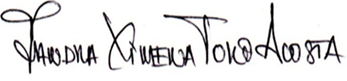 Sandra Ximena Toro Acosta